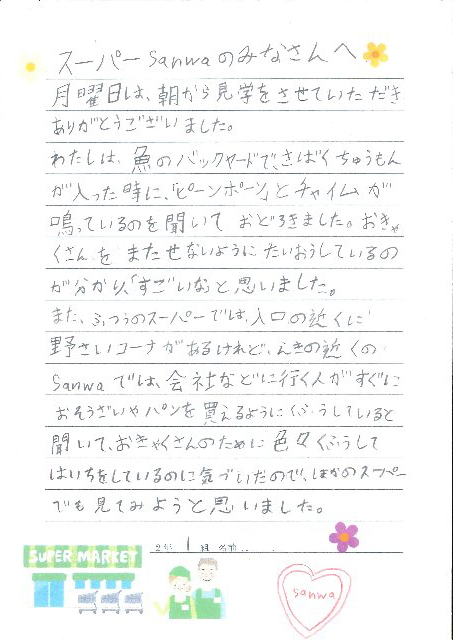 スーパーsanwaのみなさんへ
月曜日は、朝から見学をさせていただき
ありがとうございました。
わたしは、魚のバックヤードで、さばくちゅうもん
が入った時に、「ピーンポーン」とチャイムが
鳴っているのを聞いておどろきました。おきゃ
くさんをまたせないようにたいおうしているの
が分かり、「すごいな」と思いました。
また、ふつうのスーパーでは、入口の近くに
野さいコーナがあるけれど、えきの近くの
sanwaでは、会社などに行く人がすぐに
おそうざいやパンを買えるようにくふうしていると
聞いて、おきゃくさんのために色々くふうして
はいちをしているのに気づいたので、ほかのスーパー
でも見てみようと思いました。
2年 1 組 名前
SUPER MARKET
sanwa